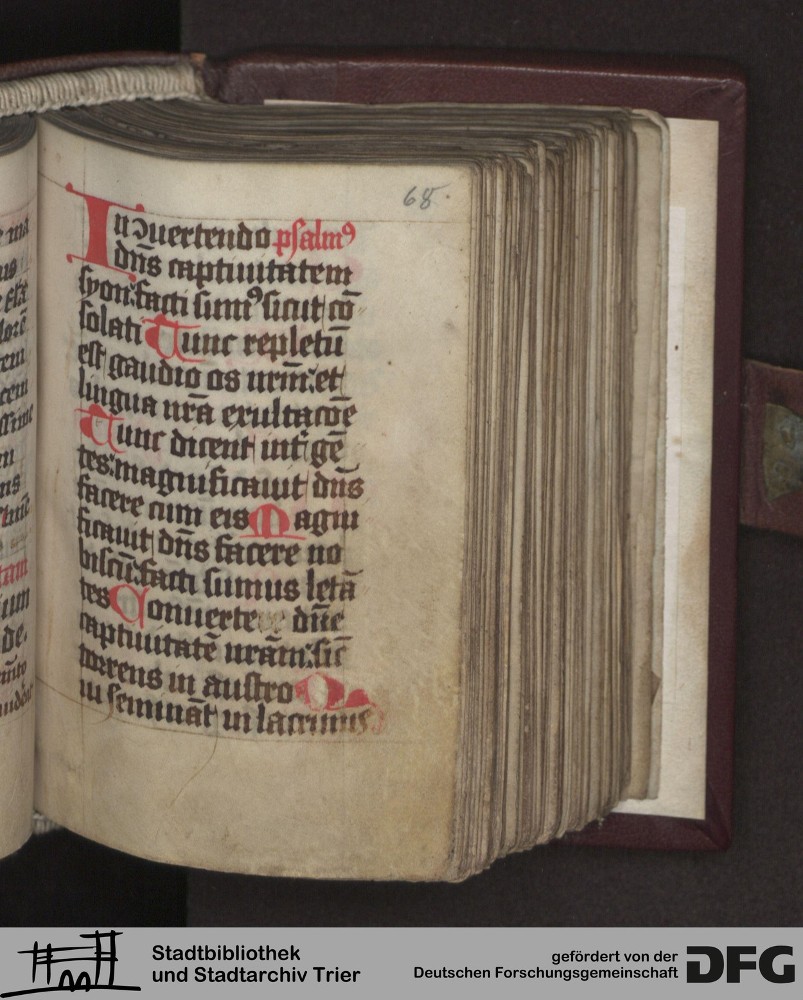 68.
In ↄuertendo psalmꝰ
dn̄s captiuitatem
syon: facti sumꝰ sicut cō
solati Tunc repletū
est gaudio os urm̄: et
lingua nr̄a exultacōe
Tunc dicent int̄ gē
tes: magnificauit dn̄s
facere cum eis Magni
ficauit dn̄s facere no
biscū: facti sumus letā
tes Conuerte dn̄e
captiuitatē nrām: sic̄
torrens in austro Q
ui semināt in lacrimis
Stadtbibliothek
und Stadtarchiv Trier
gefördert von der
Deutschen Forschungsgemeinschaft
DFG